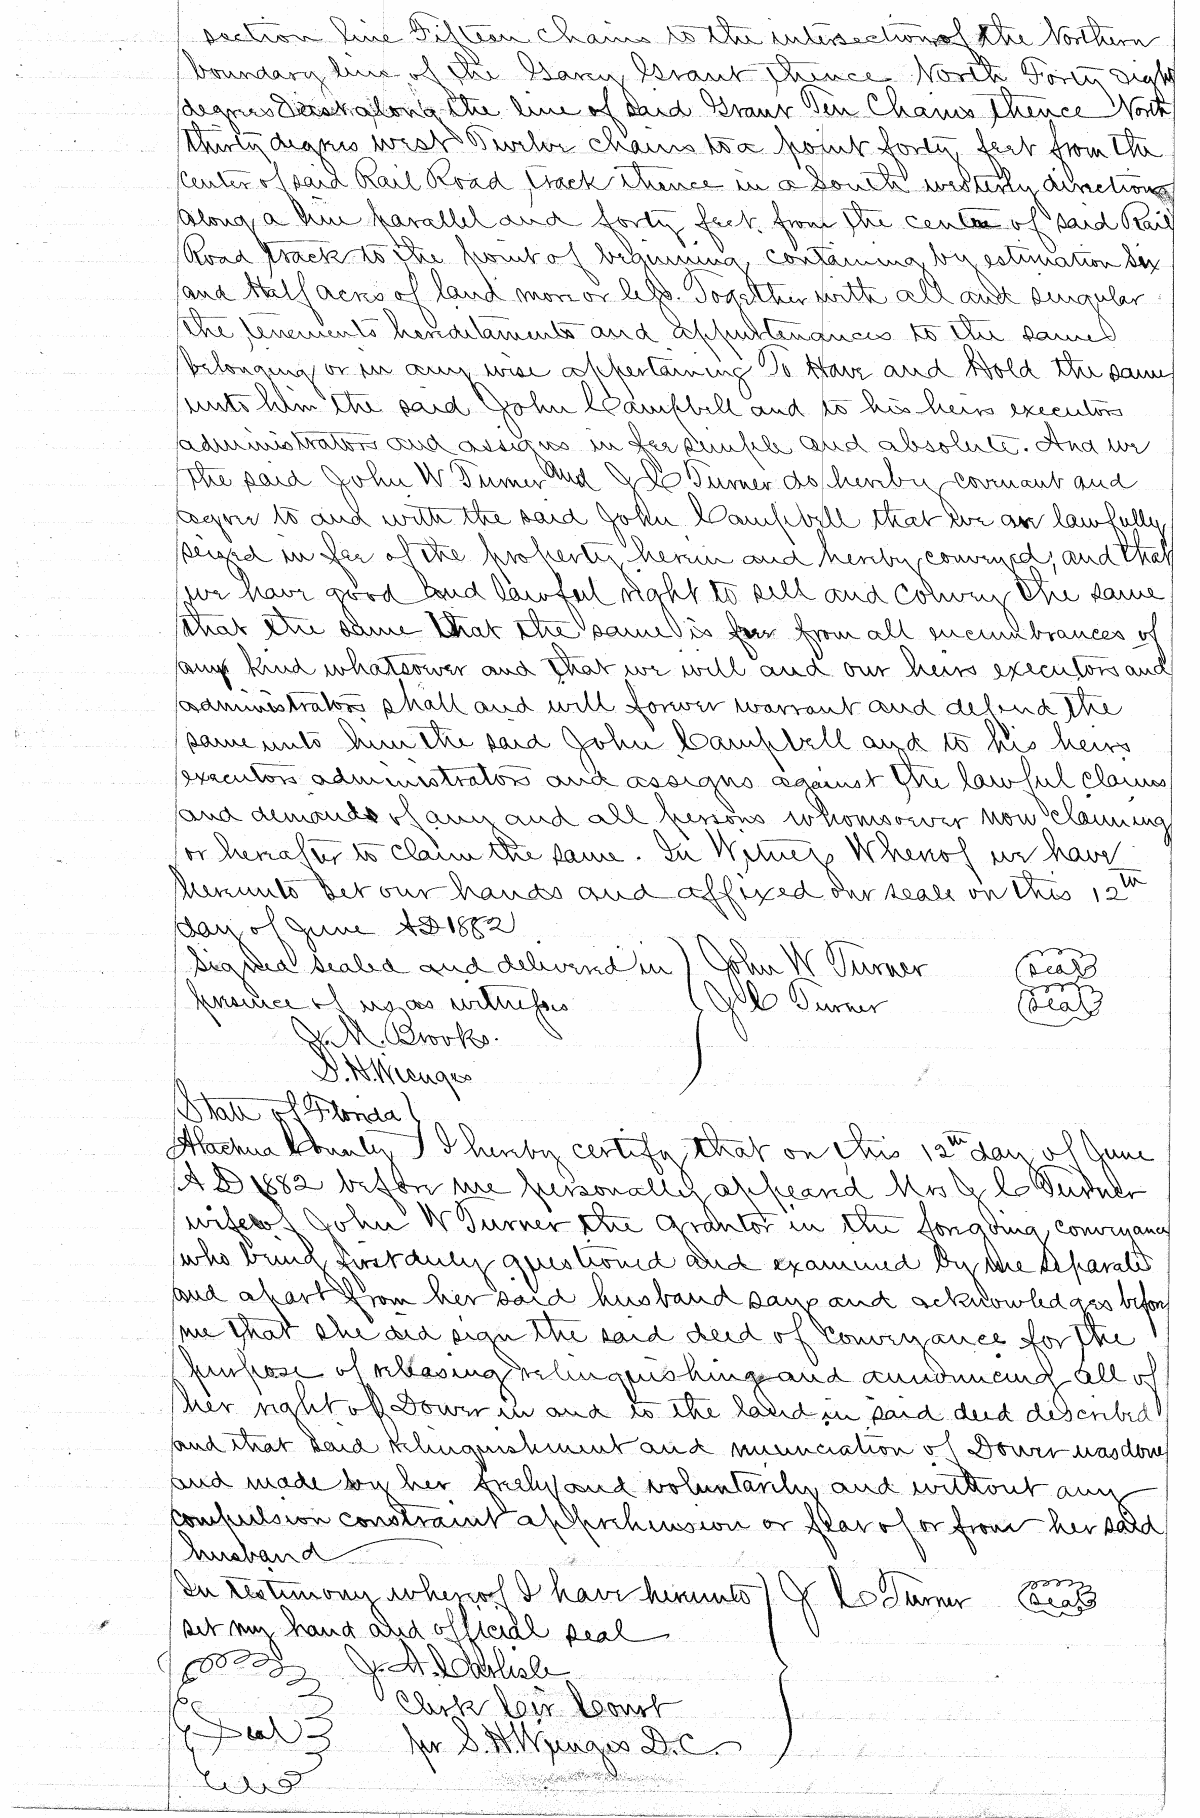 section line Fifteen Chains to the intersection of the Northern
boundary line of the Garey Grant thence North Forty Eight
degrees East along the line of said Grant Ten Chains thence North
thirty degrees west Twelve chains to a point forty feet from the
center of said Rail Road track thence in a South westerly direction
along a line parallel and forty feet from the center of said Rail
Road track to the point of beginning, containing by estimation Six
and Half acres of land more or less. Together with all and singular
the tenements hereditaments and appurtenances to the same
belonging or in any wise appertaining To Have and Hold the same
unto him the said John Campbell and to his heirs executors
administrators and assigns in fee simple and absolute. And we
the said John W Turner and J C Turner do hereby covenant and
agree to and with the said John Campbell that we are lawfully
seized in fee of the property herein and hereby conveyed, and that
we have good and lawful right to sell and convey the same
that the same that the same is free from all encumbrances of
any kind whatsoever and that we will and our heirs executors and
administrators shall and will forever warrant and defend the
same unto him the said John Campbell and to his heirs
executors administrators and assigns against the lawful claims
and demands of any and all persons whomsoever now claiming
or hereafter to claim the same. In Witness Whereof we have
hereunto set our hands and affixed our seals on this 12th
day of June AD 1882
Signed sealed and delivered in ) John W Turner (Seal)
presence of us as witnesses ( J C Turner (Seal)
J. M. Brooks.
S. H. Wienges
State of Florida )
Alachua County ) I hereby certify that on this 12th day of June
A D 1882 before me personally appeared Mrs J C Turner
wife of John W Turner the grantor in the foregoing conveyance
who being first duly questioned and examined by me separate
and apart from her said husband says and acknowledges before
me that she did sign the said deed of conveyance for the
purpose of releasing relinquishing and announcing all of
her right of Dower in and to the land in said deed described
and that said relinquishment and nunciation of Dower was done
and made by her freely and voluntarily and without any
compulsion constraint apprehension or fear of or from her said
husband
In testimony whereof I have hereunto ) J C Turner (Seal)
set my hand and official seal
J. A. Carlisle
Clerk Cir Court
Seal
per S. H. Wienges D.C.